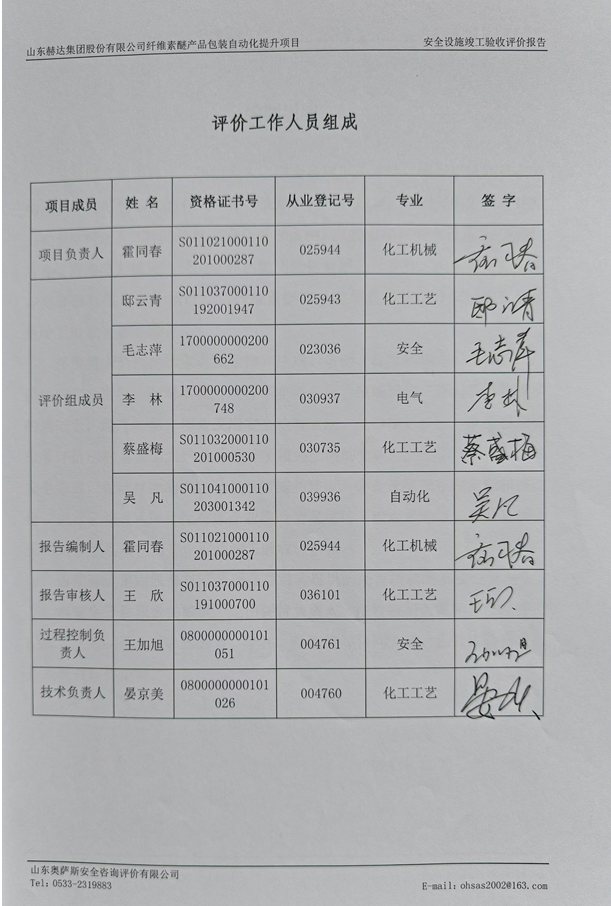 山东赫达集团股份有限公司纤维素醚产品包装自动化提升项目 安全设施竣工验收评价报告
评价工作人员组成
项目成员 姓 名 资格证书号 从业登记号 专业 签 字
项目负责人 霍同春 S011021000110 025944 化工机械
201000287
评价组成员 邸云青 S011037000110 025943 化工工艺 邸云青
192001947
毛志萍 1700000000200 023036 安全 毛志萍
662
李 林 1700000000200 030937 电气 李林
748
蔡盛梅 S011032000110 030735 化工工艺 蔡盛梅
201000530
吴 凡 S011041000110 039936 自动化 吴凡
203001342
报告编制人 霍同春 S011021000110 025944 化工机械
201000287
报告审核人 王 欣 S011037000110 036101 化工工艺 王欣
191000700
过程控制负 王加旭 0800000000101 004761 安全
责人 051
技术负责人 晏京美 0800000000101 004760 化工工艺
026
山东奥萨斯安全咨询评价有限公司
Tel：0533-2319883 E-mail：ohsas2002@163.com